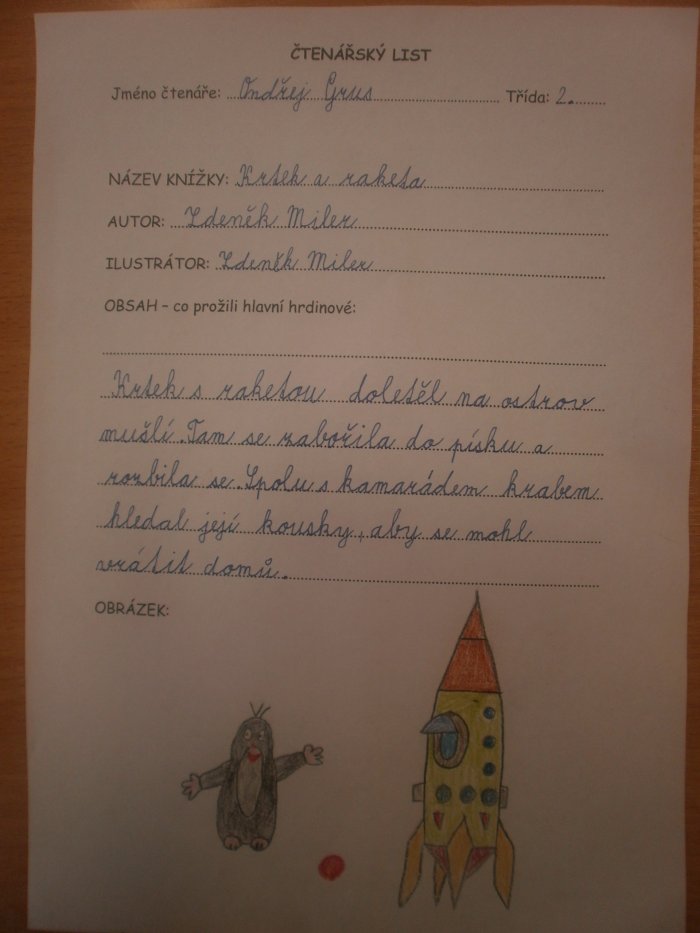 ČTENÁŘSKÝ LIST
Jméno čtenáře: Ondřej Grus Třída: 2.
NÁZEV KNÍŽKY: Krtek a raketa
AUTOR: Zdeněk Miler
ILUSTRÁTOR: Zdeněk Miler
OBSAH – co prožili hlavní hrdinové:
Krtek s raketou doletěl na ostrov
mušlí. Tam se zabořila do písku a
rozbila se. Spolu s kamarádem krabem
hledal její kousky, aby se mohl
vrátit domů.
OBRÁZEK: